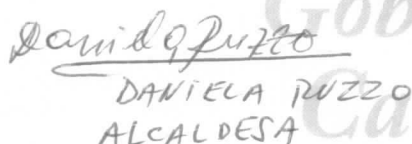 Daniela Ruzzo
DANIELA RUZZO
ALCALDESA
Gob
Ca